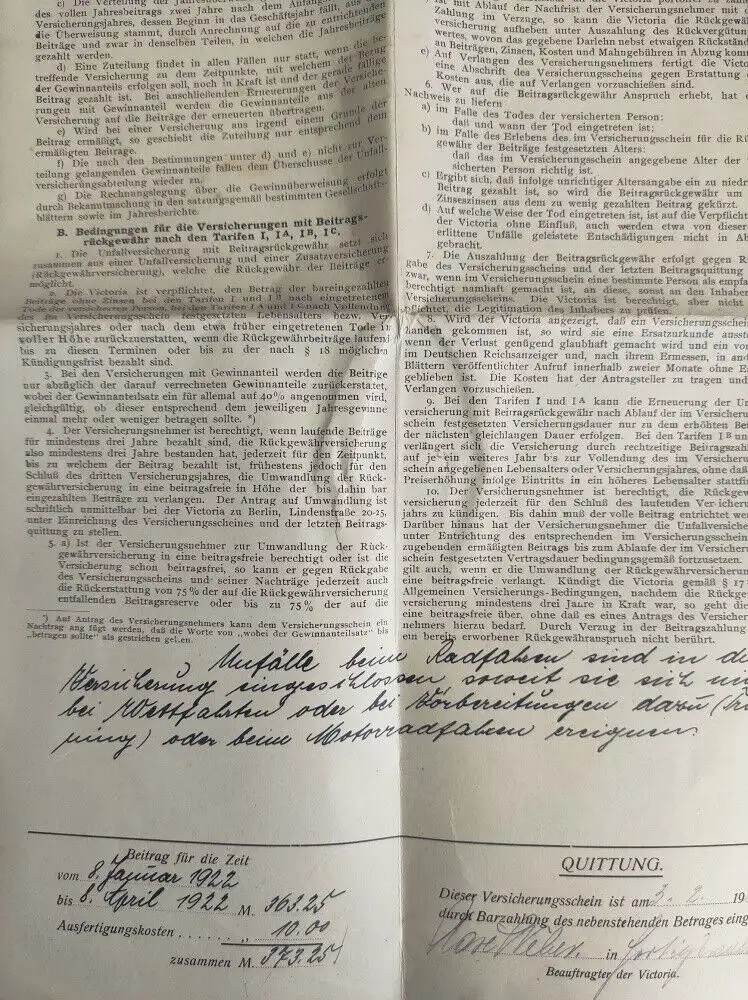 c) Die Verteilung der Jahresbeiträge nach dem Anfange
des vollen Jahresbeitrags zwei Jahre nach dem
Versicherungsjahres, dessen Beginn in das Geschäftsjahr fällt, aus
die Überweisung stammt, durch Anrechnung auf die zu entrichtenden
Beiträge und zwar in denselben Teilen, in welchen die Jahresbeiträge
gezahlt werden.
d) Eine Zuteilung findet in allen Fällen nur statt, wenn die be-
treffende Versicherung zu dem Zeitpunkte, mit welchem der Bezug
der Gewinnanteile erfolgen soll, noch in Kraft ist und der gerade fällige
Beitrag gezahlt ist. Bei anschließenden Erneuerungen der Versiche-
rungen mit Gewinnanteil werden die Gewinnanteile aus der alten
Versicherung auf die Beiträge der erneuerten übertragen.
e) Wird bei einer Versicherung aus irgend einem Grunde der
Beitrag ermäßigt, so geschieht die Zuteilung nur entsprechend dem
ermäßigten Beitrage.
f) Die nach den Bestimmungen unter d) und e) nicht zur Ver-
teilung gelangenden Gewinnanteile fallen dem Überschusse der Unfall-
versicherungsabteilung wieder zu.
g) Die Rechnungslegung über die Gewinnüberweisung erfolgt
durch Bekanntmachung in den satzungsgemäß bestimmten Gesellschafts-
blättern sowie im Jahresberichte.
B. Bedingungen für die Versicherungen mit Beitrags-
rückgewähr nach den Tarifen I, IA, IB, IC,
1. Die Unfallversicherung mit Beitragsrückgewähr setzt sich
zusammen aus einer Unfallversicherung und einer Zusatzversicherung
(Rückgewährversicherung), welche die Rückgewähr der Beiträge er-
möglicht.
2. Die Victoria ist verpflichtet, den Betrag der bareingezahlten
Beiträge ohne Zinsen bei den Tarifen I und IB nach eingetretenem
Tode der versicherten Person, bei den Tarifen IA und IC nach Vollendung
des im Versicherungsschein festgesetzten Lebensalters bezw. Ver-
sicherungsjahres oder nach dem etwa früher eingetretenen Tode in
voller Höhe zurückzuerstatten, wenn die Rückgewährbeiträge laufend
bis zu diesen Terminen oder bis zu der nach § 18 möglichen
Kündigungsfrist bezahlt sind.
3. Bei den Versicherungen mit Gewinnanteil werden die Beiträge
nur abzüglich der darauf verrechneten Gewinnanteile zurückerstatet,
wobei der Gewinnanteilsatz ein für allemal auf 40% angenommen wird,
gleichgültig, ob dieser entsprechend dem jeweiligen Jahresgewinne
einmal mehr oder weniger betragen sollte. *)
4. Der Versicherungsnehmer ist berechtigt, wenn laufende Beiträge
für mindestens drei Jahre bezahlt sind, die Rückgewährversicherung
also mindestens drei Jahre bestanden hat, jederzeit für den Zeitpunkt,
bis zu welchem der Beitrag bezahlt ist, frühestens jedoch für den
Schluß des dritten Versicherungsjahres, die Umwandlung der Rück-
gewährversicherung in eine beitragsfreie in Höhe der bis dahin bar
eingezahlten Beiträge zu verlangen. Der Antrag auf Umwandlung ist
schriftlich unmittelbar bei der Victoria zu Berlin, Lindenstraße 20-25,
unter Einreichung des Versicherungsscheines und der letzten Beitrags-
quittung zu stellen.
5. a) Ist der Versicherungsnehmer zur Umwandlung der Rück-
gewährversicherung in eine beitragsfreie berechtigt oder ist die
Versicherung schon beitragsfrei, so kann er gegen Rückgabe
des Versicherungsscheins und seiner Nachträge jederzeit auch
die Rückerstattung von 75% der auf die Rückgewährversicherung
entfallenden Beitragsreserve oder bis zu 75% der auf die
*) Auf Antrag des Versicherungsnehmers kann dem Versicherungsschein ein
Nachtrag angefügt werden, daß die Worte von „wobei der Gewinnanteilsatz" bis
„betragen sollte" als gestrichen gelten.
ist mit Ablauf der Nachfrist der Versicherungsnehmer mit
Zahlung im Verzuge, so kann die Victoria die Rückgewähr
versicherung aufheben unter Auszahlung des Rückvergütun
wertes, wovon das gegebene Darlehn nebst etwaigen Rückständ
an Beiträgen, Zinsen, Kosten und Mahngebühren in Abzug kom
e) Auf Verlangen des Versicherungsnehmers fertigt die Victo
eine Abschrift des Versicherungsscheins gegen Erstattung
Kosten aus, die auf Verlangen vorzuschießen sind.
6. Wer auf die Beitragsrückgewähr Anspruch erhebt, hat
Nachweis zu liefern
a) im Falle des Todes der versicherten Person:
daß und wann der Tod eingetreten ist;
b) im Falle des Erlebens des im Versicherungsschein für die Rü
gewähr der Beiträge festgesetzten Alters:
daß das im Versicherungsschein angegebene Alter der
sicherten Person richtig ist.
c) Ergibt sich, daß infolge unrichtiger Altersangabe ein zu niede
Beitrag gezahlt ist, so wird die Beitragsrückgewähr um
Zinseszinsen aus dem zu wenig gezahlten Beitrag gekürzt.
d) Auf welche Weise der Tod eingetreten ist, ist auf die Verpflich
der Victoria ohne Einfluß, auch werden etwa von dieser
erlittene Unfälle geleistete Entschädigungen nicht in Ab
gebracht.
7. Die Auszahlung der Beitragsrückgewähr erfolgt gegen R
gabe des Versicherungsscheins und der letzten Beitragsquittung
zwar, wenn im Versicherungsschein eine bestimmte Person als empfa
berechtigt namhaft gemacht ist, an diese, sonst an den Inhaber
Versicherungsscheins. Die Victoria ist berechtigt, aber nicht
pflichtet, die Legitimation des Inhabers zu prüfen.
8. Wird der Victoria angezeigt, daß ein Versicherungsschei
handen gekommen ist, so wird sie eine Ersatzurkunde ausste
wenn der Verlust genügend glaubhaft gemacht wird und ein von
im Deutschen Reichsanzeiger und, nach ihrem Ermessen, in and
Blättern veröffentlichter Aufruf innerhalb zweier Monate ohne E
geblieben ist. Die Kosten hat der Antragsteller zu tragen und
Verlangen vorzuschießen.
9. Bei den Tarifen I und IA kann die Erneuerung der Un
versicherung mit Beitragsrückgewähr nach Ablauf der im Versicher
schein festgesetzten Versicherungsdauer nur zu dem erhöhten Bei
der nächsten gleichlangen Dauer erfolgen. Bei den Tarifen IB un
verlängert sich die Versicherung durch rechtzeitige Beitragszah
auf je ein weiteres Jahr bis zur Vollendung des im Versicher
schein angegebenen Lebensalters oder Versicherungsjahres, ohne daß
Preiserhöhung infolge Eintritts in ein höheres Lebensalter stattfin
10. Der Versicherungsnehmer ist berechtigt, die Rückgew
versicherung jederzeit für den Schluß des laufenden Versicherun
jahrs zu kündigen. Bis dahin muß der volle Beitrag entrichtet we
Darüber hinaus hat der Versicherungsnehmer die Unfallversicher
unter Entrichtung des entsprechenden im Versicherungsschein
zugebenden ermäßigten Beitrags bis zum Ablaufe der im Versicher
schein festgesetzten Vertragsdauer bedingungsgemäß fortzusetzen.
gilt auch, wenn er die Umwandlung der Rückgewährversicherun
eine beitragsfreie verlangt. Kündigt die Victoria gemäß § 17
Allgemeinen Versicherungs-Bedingungen, nachdem die Rückgew
versicherung mindestens drei Jahre in Kraft war, so geht die
eine beitragsfreie über, ohne daß es eines Antrags des Versicher
nehmers hierzu bedarf. Durch Verzug in der Beitragszahlung
ein bereits erworbener Rückgewähranspruch nicht berührt.
Unfälle beim Radfahren sind in die
Versicherung eingeschlossen, soweit sie sich nic
bei Wettfahrten oder bei Vorbereitungen dazu (Tra
ning) oder beim Motorradfahren ereignen.
Beitrag für die Zeit
vom 8. Januar 1922
bis 8. April 1922 M. 363.25
Ausfertigungskosten . . . . . „ 10.00
zusammen M. 373.25
QUITTUNG.
Dieser Versicherungsschein ist am 3. 2. 19
durch Barzahlung des nebenstehenden Betrages eing
in
Beauftragter der Victoria.